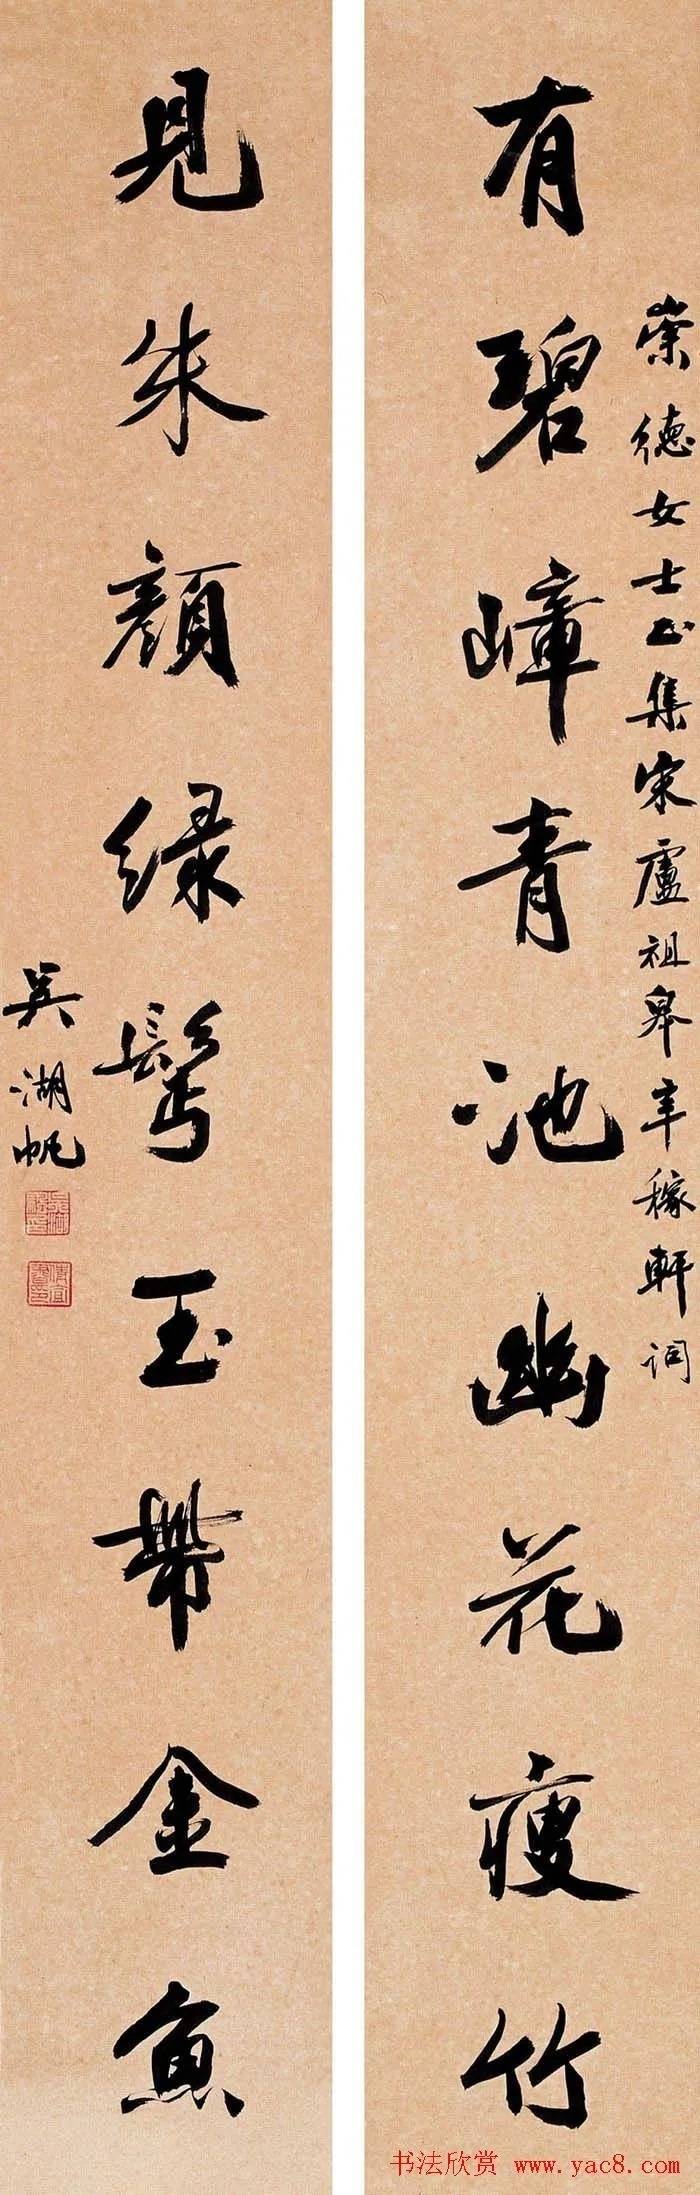 崇德女士正集宋盧祖皋辛稼軒詞
有碧嶂青池幽花瘦竹
見朱顏綠鬢玉帶金魚
吳湖帆
书法欣赏 www.yac8.com